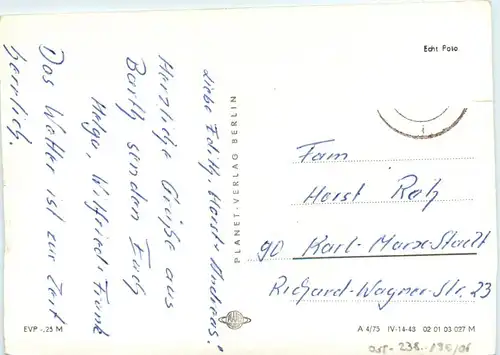 Liebe Edith, Horst + Andreas!
Herzliche Grüße aus
Barth senden Euch
Helga, Wilfried + Frank
Das Wetter ist zur Zeit
herrlich.
PLANET-VERLAG BERLIN
Echt Foto
Fam
Horst
90 Karl-Marx-Stadt
Richard-Wagner-Str. 23
EVP -,25 M
A 4/75 IV-14-48 02 01 03 027 M